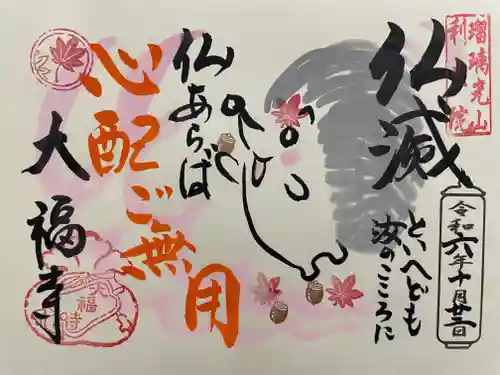 瑠璃光山
利院
仏滅
といへども
汝のこころに
令和六年十月廿三日
仏あらば
心配ご無用
大福寺